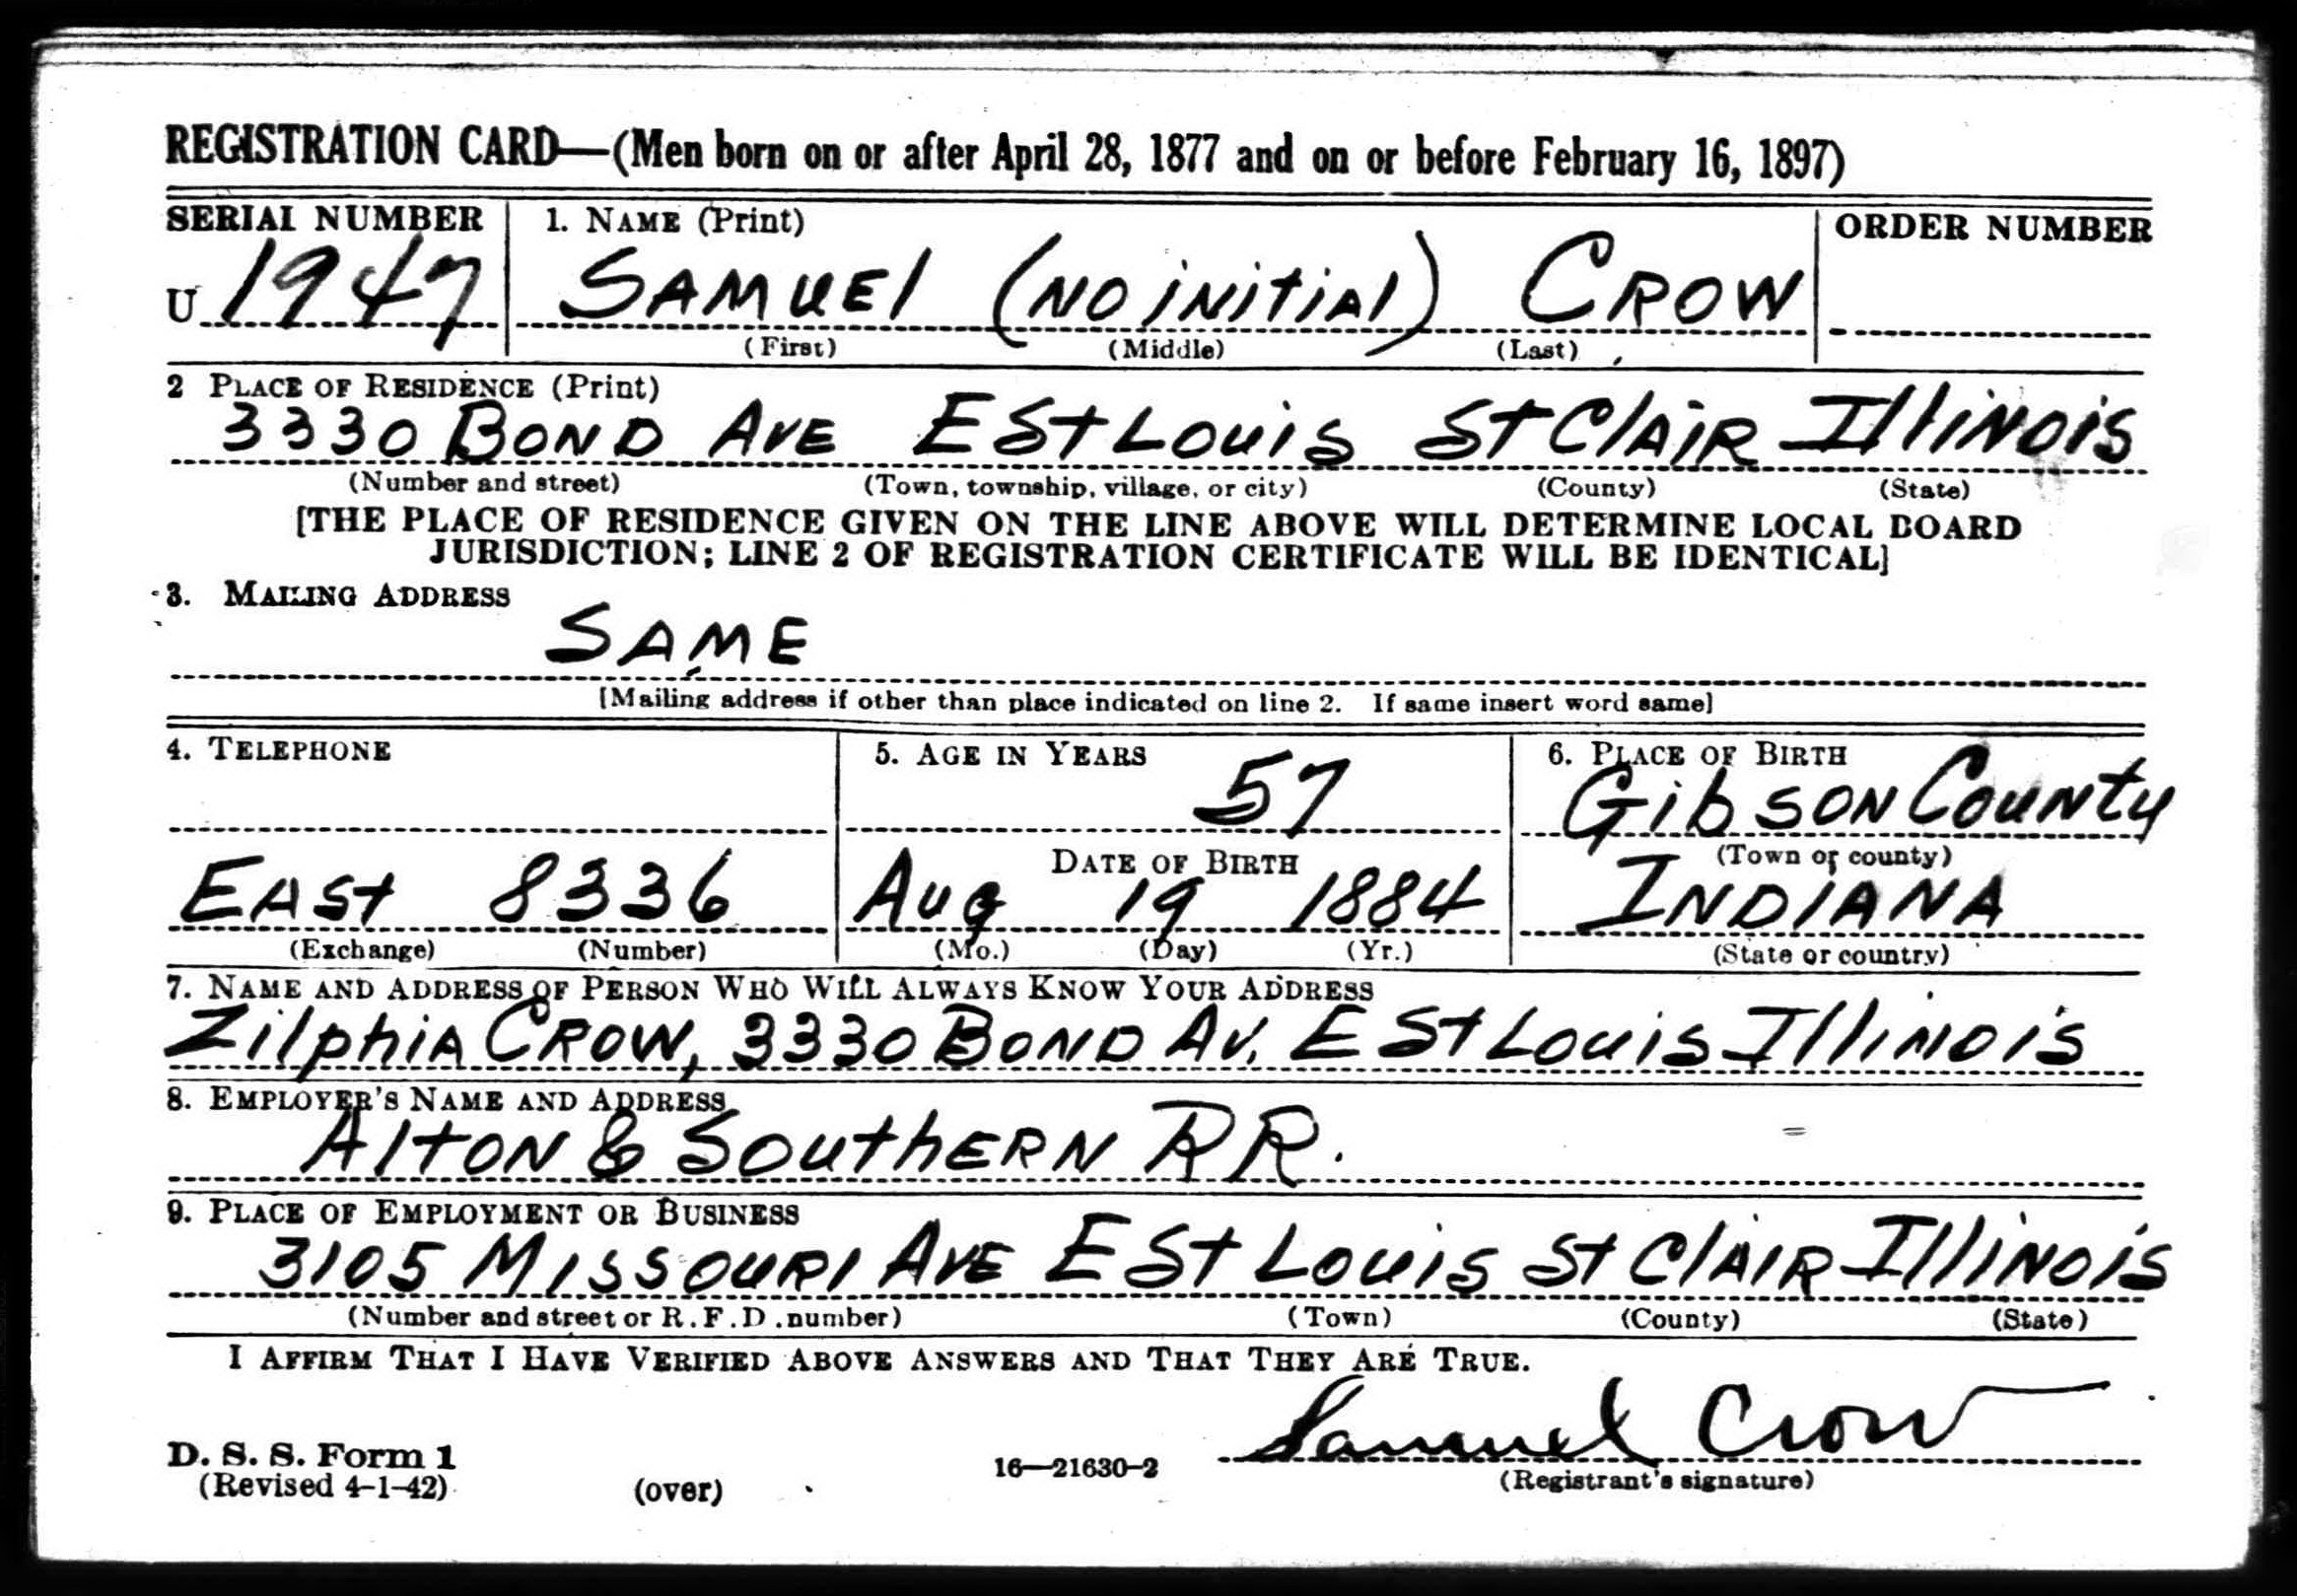 REGISTRATION CARD—(Men born on or after April 28, 1877 and on or before February 16, 1897)
SERIAL NUMBER 1. NAME (Print) ORDER NUMBER
U 1947 SAMUEL (NO INITIAL) CROW
(First) (Middle) (Last)
2 PLACE OF RESIDENCE (Print)
3330 BOND AVE E St LOUIS St CLAIR ILLINOIS
(Number and street) (Town, township, village, or city) (County) (State)
[THE PLACE OF RESIDENCE GIVEN ON THE LINE ABOVE WILL DETERMINE LOCAL BOARD
JURISDICTION; LINE 2 OF REGISTRATION CERTIFICATE WILL BE IDENTICAL]
3. MAILING ADDRESS
SAME
[Mailing address if other than place indicated on line 2. If same insert word same]
4. TELEPHONE 5. AGE IN YEARS 6. PLACE OF BIRTH
57 Gibson County
DATE OF BIRTH (Town or county)
EAST 8336 Aug 19 1884 INDIANA
(Exchange) (Number) (Mo.) (Day) (Yr.) (State or country)
7. NAME AND ADDRESS OF PERSON WHO WILL ALWAYS KNOW YOUR ADDRESS
Zilphia CROW, 3330 BOND AV. E St LOUIS ILLINOIS
8. EMPLOYER'S NAME AND ADDRESS
ALTON & SOUTHERN RR.
9. PLACE OF EMPLOYMENT OR BUSINESS
3105 MISSOURI AVE E St LOUIS St CLAIR ILLINOIS
(Number and street or R.F.D. number) (Town) (County) (State)
I AFFIRM THAT I HAVE VERIFIED ABOVE ANSWERS AND THAT THEY ARE TRUE.
Samuel Crow
D. S. S. Form 1 16—21630-2 (Registrant's signature)
(Revised 4-1-42) (over)